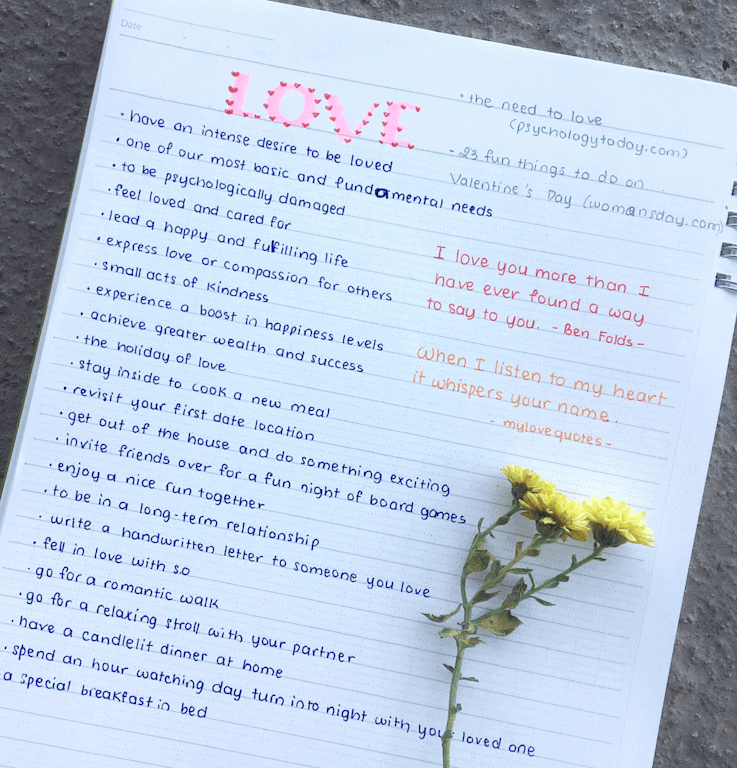 Date
LOVE
• have an intense desire to be loved
• one of our most basic and fundamental needs
• to be psychologically damaged
• feel loved and cared for
• lead a happy and fulfilling life
• express love or compassion for others
• small acts of kindness
• experience a boost in happiness levels
• achieve greater wealth and success
• the holiday of love
• stay inside to cook a new meal
• revisit your first date location
• get out of the house and do something exciting
• invite friends over for a fun night of board games
• enjoy a nice run together
• to be in a long-term relationship
• write a handwritten letter to someone you love
• fell in love with s.o
• go for a romantic walk
• go for a relaxing stroll with your partner
• have a candlelit dinner at home
• spend an hour watching day turn into night with your loved one
a special breakfast in bed
• the need to love
(psychologytoday.com)
- 23 fun things to do on....
Valentine's Day (womansday.com)
I love you more than I
have ever found a way
to say to you. - Ben Folds -
When I listen to my heart
it whispers your name.
- mylovequotes -